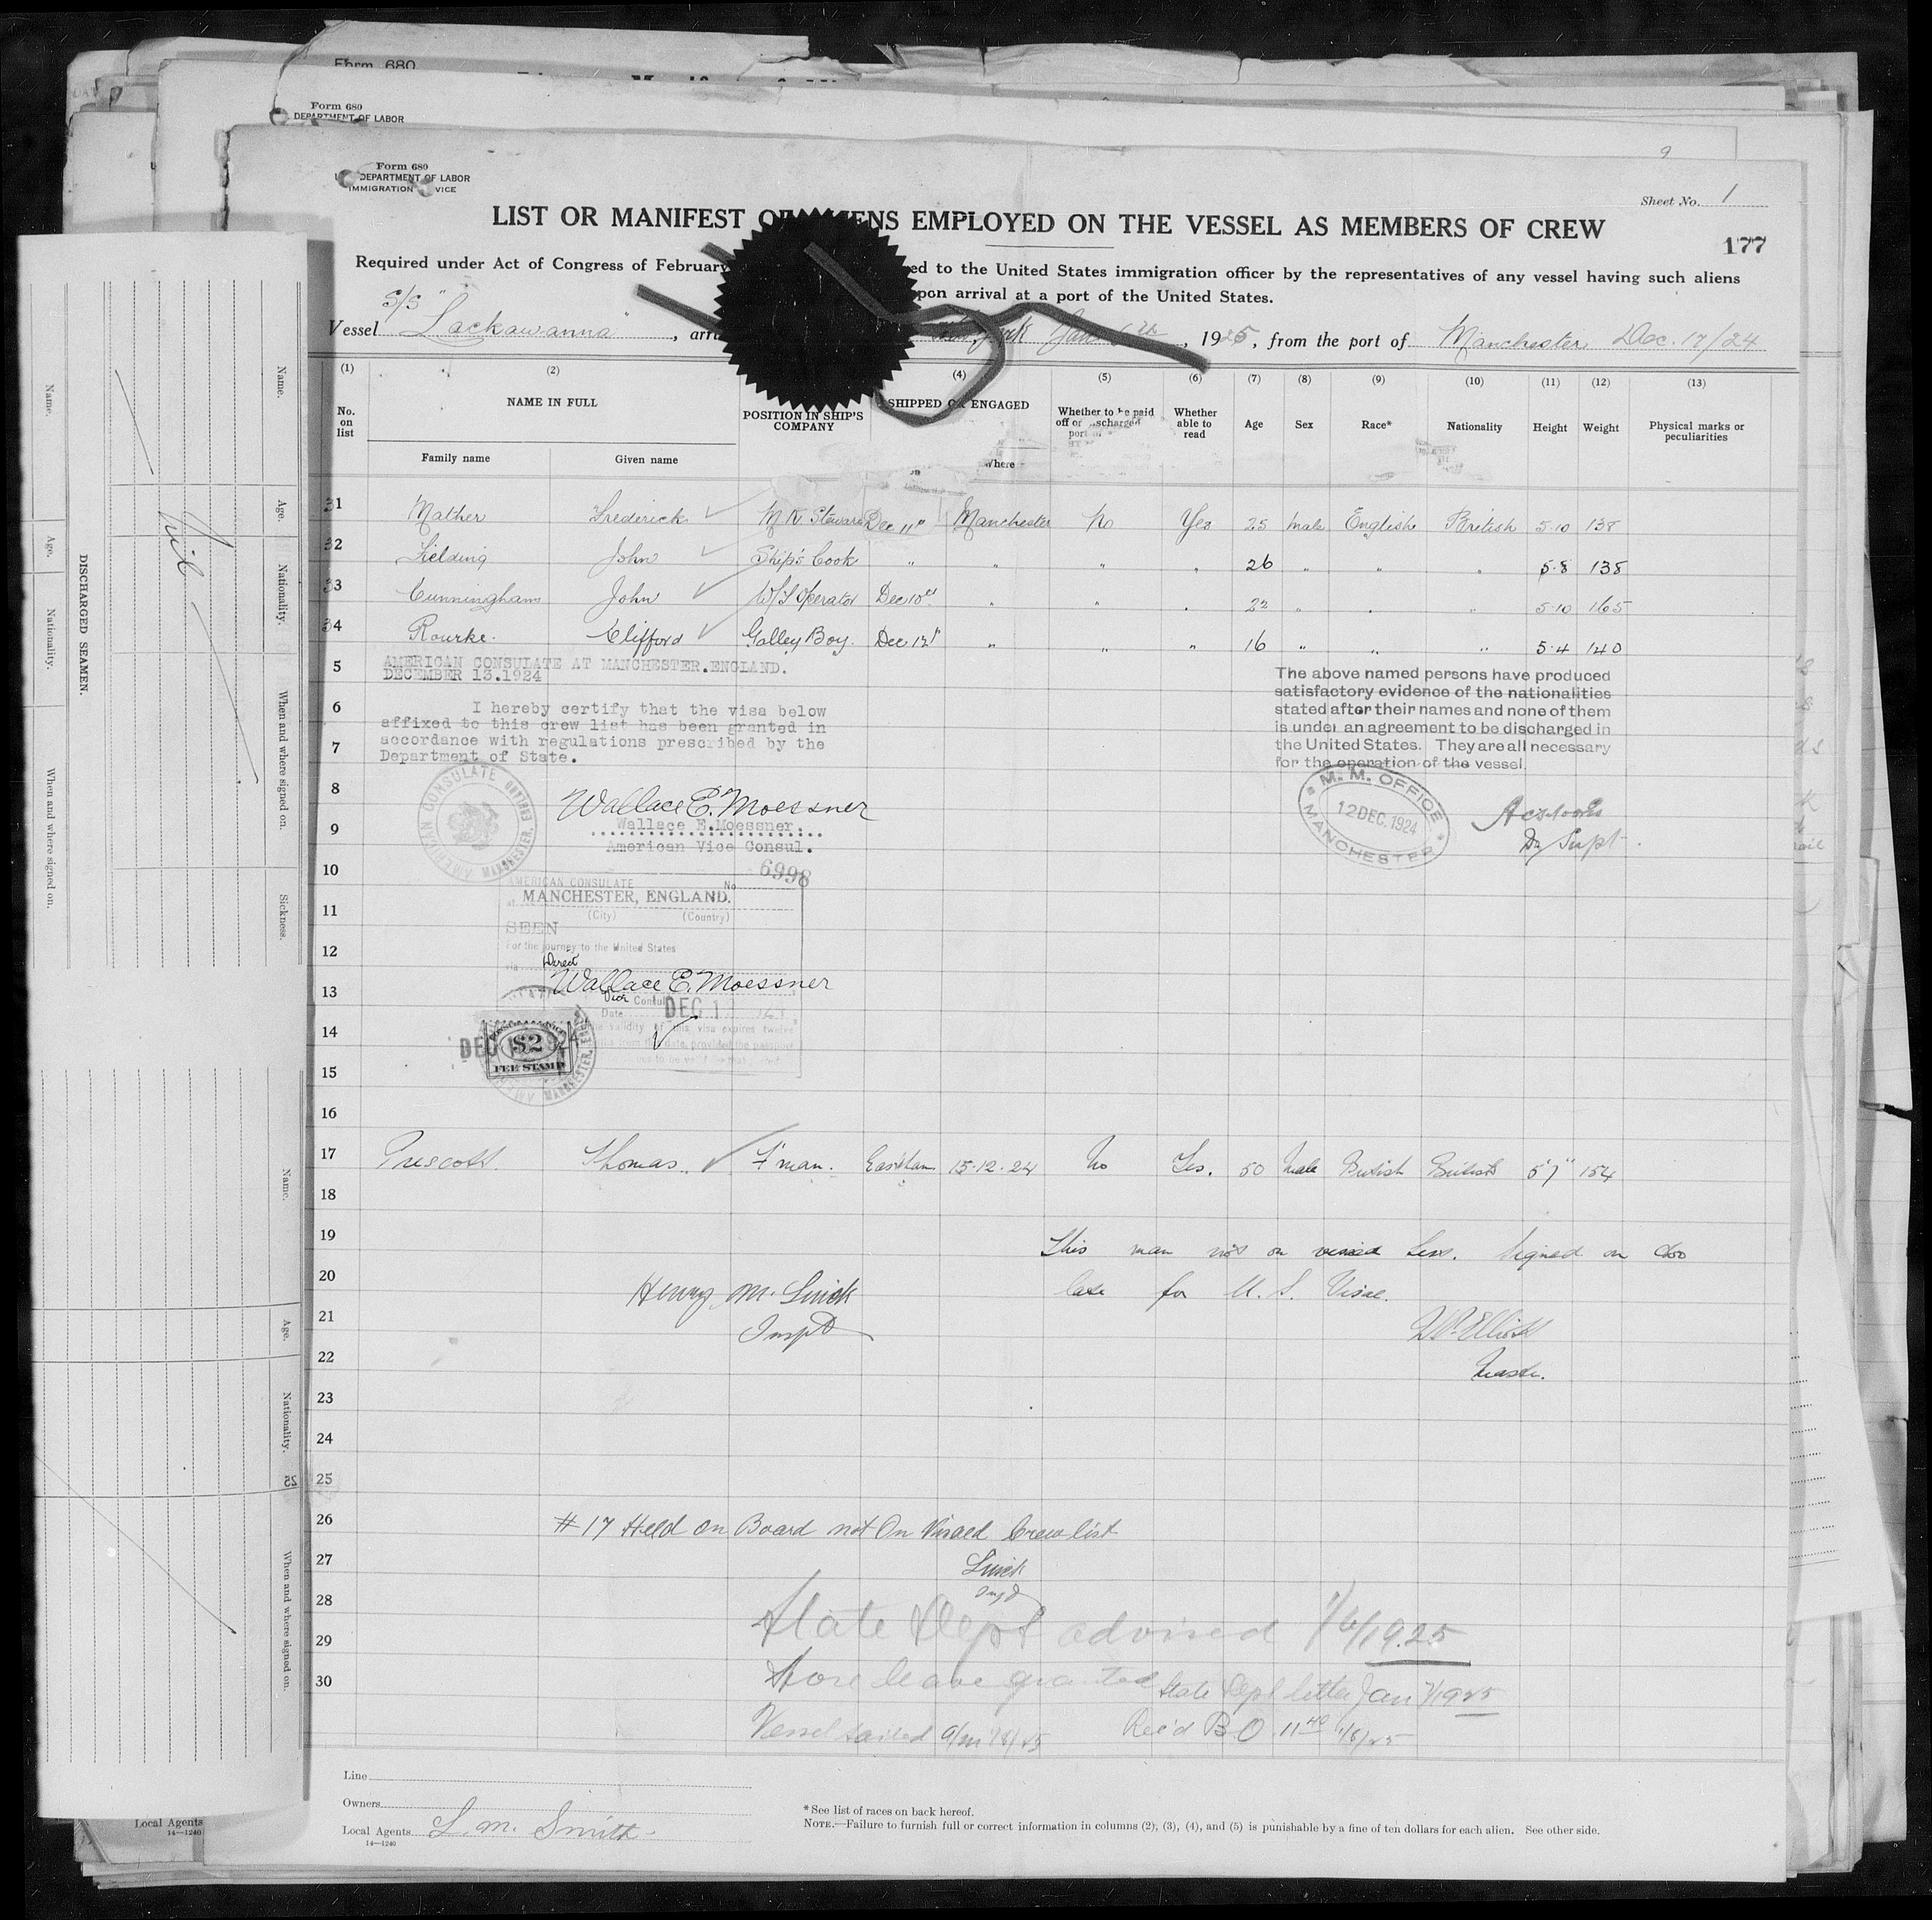 Form 680
Form 680
DEPARTMENT OF LABOR
Form 680
DEPARTMENT OF LABOR
IMMIGRATION VICE
9
Sheet No. 1
LIST OR MANIFEST OF ALIENS EMPLOYED ON THE VESSEL AS MEMBERS OF CREW
177
Required under Act of Congress of February ed to the United States immigration officer by the representatives of any vessel having such aliens
upon arrival at a port of the United States.
S/S
Vessel "Lackawanna", arri New York Jan 6th, 1925, from the port of Manchester Dec. 17/24
(1) (2) (4) (5) (6) (7) (8) (9) (10) (11) (12) (13)
No. on list NAME IN FULL POSITION IN SHIP'S COMPANY SHIPPED OR ENGAGED Whether to be paid off or discharged Whether able to read Age Sex Race* Nationality Height Weight Physical marks or peculiarities
Family name Given name Where
31 Mather Frederick Dec 11" Manchester No Yes 25 male English British 5·10 138
32 Fielding John Ship's Cook " " " " 26 " " " 5·8 138
33 Cunningham John W/T Operator " " " 22 " " " 5·10 165
34 Rourke. Clifford Galley Boy. Dec 12" " " " 16 " " " 5·4 140
5 AMERICAN CONSULATE AT MANCHESTER.ENGLAND.
DECEMBER 13.1924
6 I hereby certify that the visa below
affixed to this crew list has been granted in
7 accordance with regulations prescribed by the
Department of State.
The above named persons have produced
satisfactory evidence of the nationalities
stated after their names and none of them
is under an agreement to be discharged in
the United States. They are all necessary
for the operation of the vessel.
AMERICAN CONSULATE MANCHESTER, ENGLAND
8 Wallace E. Moessner
9 Wallace E.Moessner.
American Vice Consul.
M. M. OFFICE
12 DEC. 1924
MANCHESTER
Dy Supt.
10 AMERICAN CONSULATE No 6998
at MANCHESTER, ENGLAND.
11 (City) (Country)
SEEN
12 For the journey to the United States
via Direct
13 Wallace E. Moessner
Vice Consul
Date DEC 1
14 The validity of this visa expires twelve
months from this date, provided the passport
$2
FEE STAMP
15
16
17 Prescott. Thomas. F'man. Eastham 15·12·24 No Yes. 50 Male British British 5'7" 154
18
19 This man not on visaed list. Signed on too
20 late for U. S. Visae.
Henry M. Linck
21 Inspt
Elliott
22 Master.
23
24
25
26 #17 Held on Board not On Visaed Crew list
27 Linck
Inspt
28
29 State Dept advised 1/6/1925
30 Shore leave granted State Dept letter Jan 7/1925
Vessel sailed Rec'd B.O. 11 40 1/8/25
Line
Owners
Local Agents L. M. Smith
14—1240
*See list of races on back hereof.
NOTE.—Failure to furnish full or correct information in columns (2), (3), (4), and (5) is punishable by a fine of ten dollars for each alien. See other side.
Local Agents
14—1240
DISCHARGED SEAMEN.
Name. Age. Nationality. When and where signed on.
Name. Age. Nationality. When and where signed on. Sickness.
Nil
Name. Age. Nationality. When and where signed on.
25